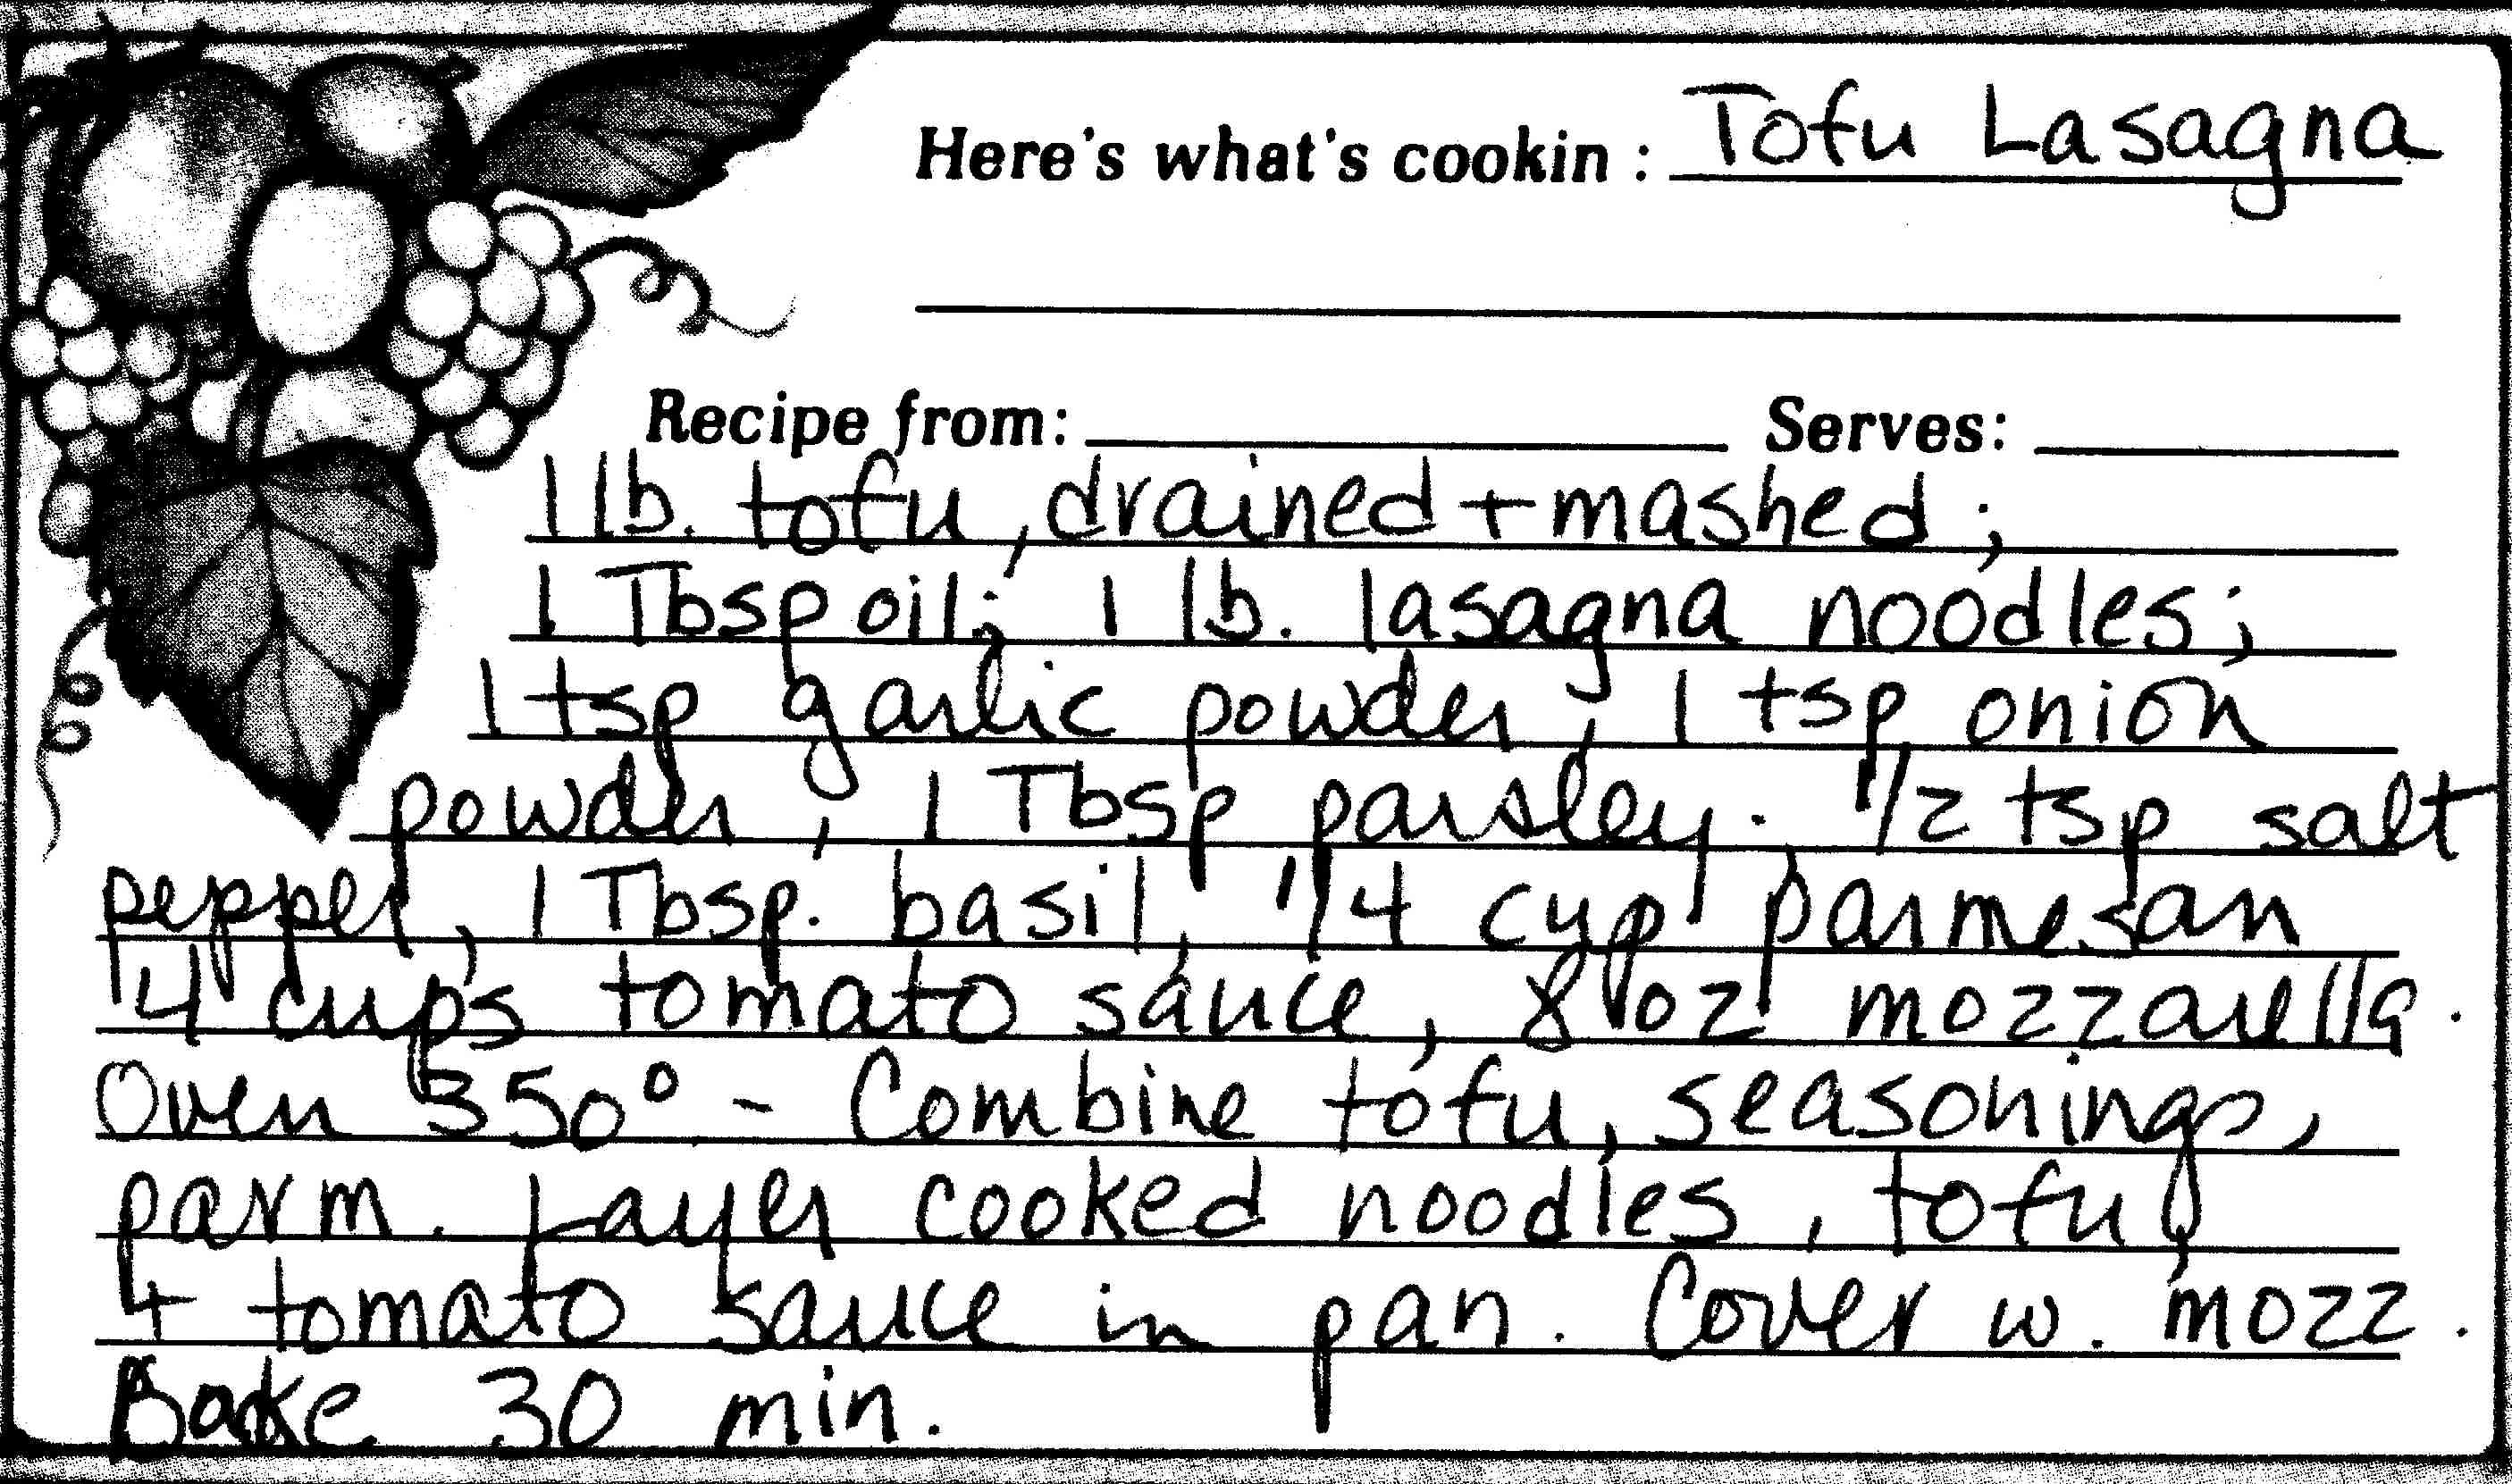 Here's what's cookin : Tofu Lasagna
Recipe from: Serves:
1 lb. tofu, drained + mashed ;
1 Tbsp oil; 1 lb. lasagna noodles;
1 tsp garlic powder, 1 tsp onion
powder, 1 Tbsp parsley. 1/2 tsp salt
pepper, 1 Tbsp. basil, 1/4 cup parmesan
4 cups tomato sauce, 8 oz mozzarella.
Oven 350° - Combine tofu, seasonings,
parm. Layer cooked noodles, tofu,
+ tomato sauce in pan. Cover w. mozz.
Bake 30 min.